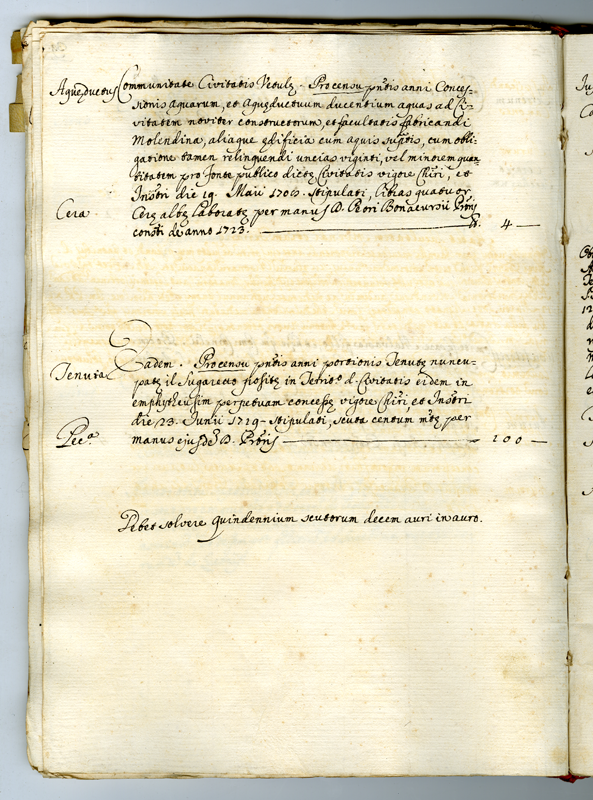 Aquęductus Communitate Civitatis Vetulę. Pro censu pñtis anni Conces-
sionis aquarum, et Aquęductuum ducentium aquas ad Ci-
vitatem noviter constructorum, et facultatis fabricandi
Molendina, aliaque ędificia cum aquis suptis, cum obli-
gatione tamen relinquendi uncias viginti, vel minorem quan-
titatem pro fonte publico dictę Civitatis vigore Chiri, et
Instri die 19. Maii 1706. Stipulati, libras quatuor
Cera Cerę albę laboratę per manus D. Petri Bonaccursii Pntis
consti de anno 1723. — 4 —
Tenuta Eadem. Pro censu pñtis anni portionis Tenutę nuncu-
patę il Sugareto positę in Territo d. Civitatis eidem in
emphyteusim perpetuam concessę vigore Chiri, et Instri
die 23. Junii 1719 - Stipulati, scuta centum mtę per
Pec.ª manus ejusdem D. — 100 —
Debet solvere quindennium scutorum decem auri in auro.